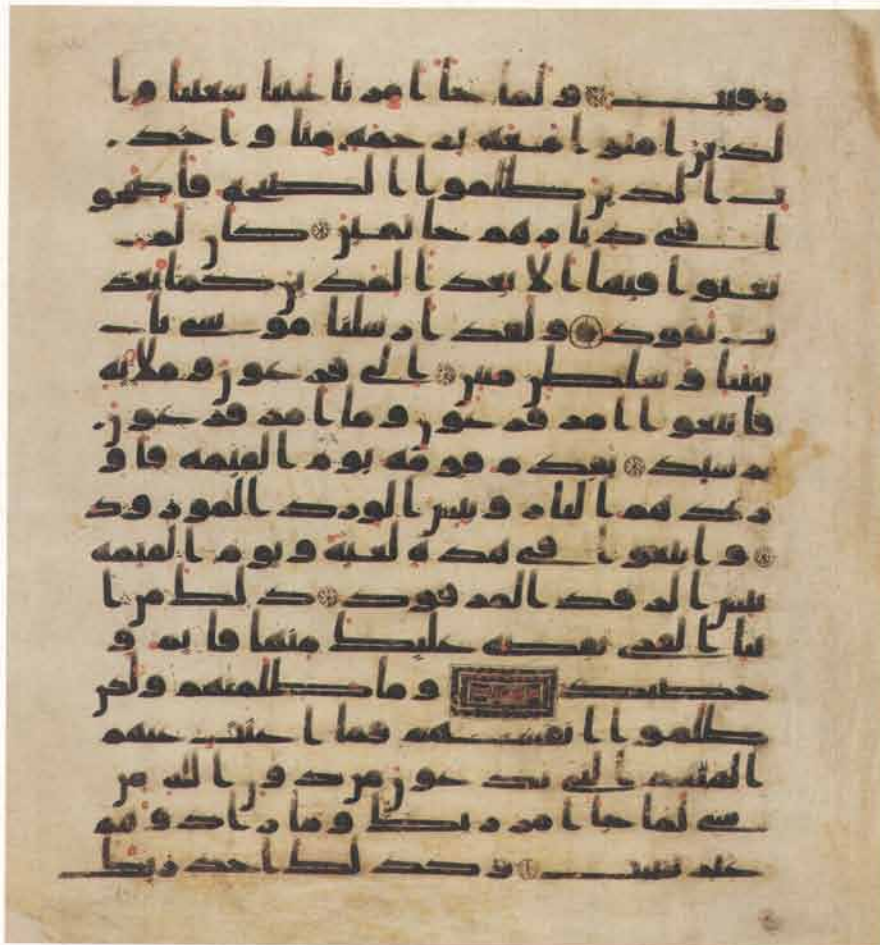 رقيب ولما جا امرنا نجينا شعيبا وا
لذين امنوا معه برحمة منا واخذ
ت الذين ظلموا الصيحة فاصبحو
ا في ديارهم جثمين كان لم
يغنوا فيها الا بعدا لمدين كما بعد
ت ثمود ولقد ارسلنا موسى با
يتنا وسلطن مبين الى فرعون وملايه
فاتبعوا امر فرعون وما امر فرعون
برشيد يقدم قومه يوم القيمة فاو
ردهم النار وبئس الورد المورود
واتبعوا في هذه لعنة ويوم القيمة
بئس الرفد المرفود ذلك من ا
نبا القرى نقصه عليك منها قايم و
حصيد وما ظلمنهم ولكن
ظلموا انفسهم فما اغنت عنهم
الهتهم التي يدعون من دون الله من
شي لما جا امر ربك وما زادوهم
غير تتبيب وكذلك اخذ ربك